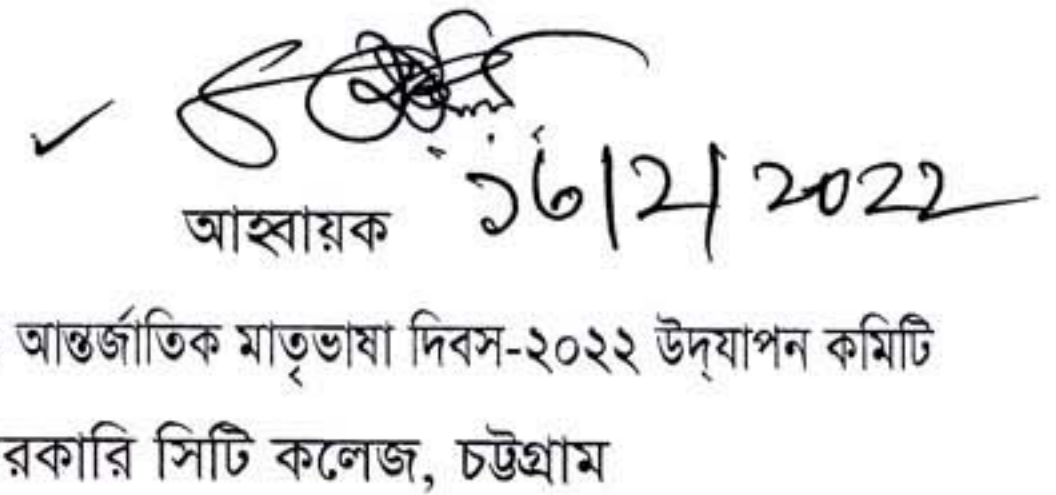 ১৬/২/২০২২
আহ্বায়ক
আন্তর্জাতিক মাতৃভাষা দিবস-২০২২ উদ্‌যাপন কমিটি
রকারি সিটি কলেজ, চট্টগ্রাম